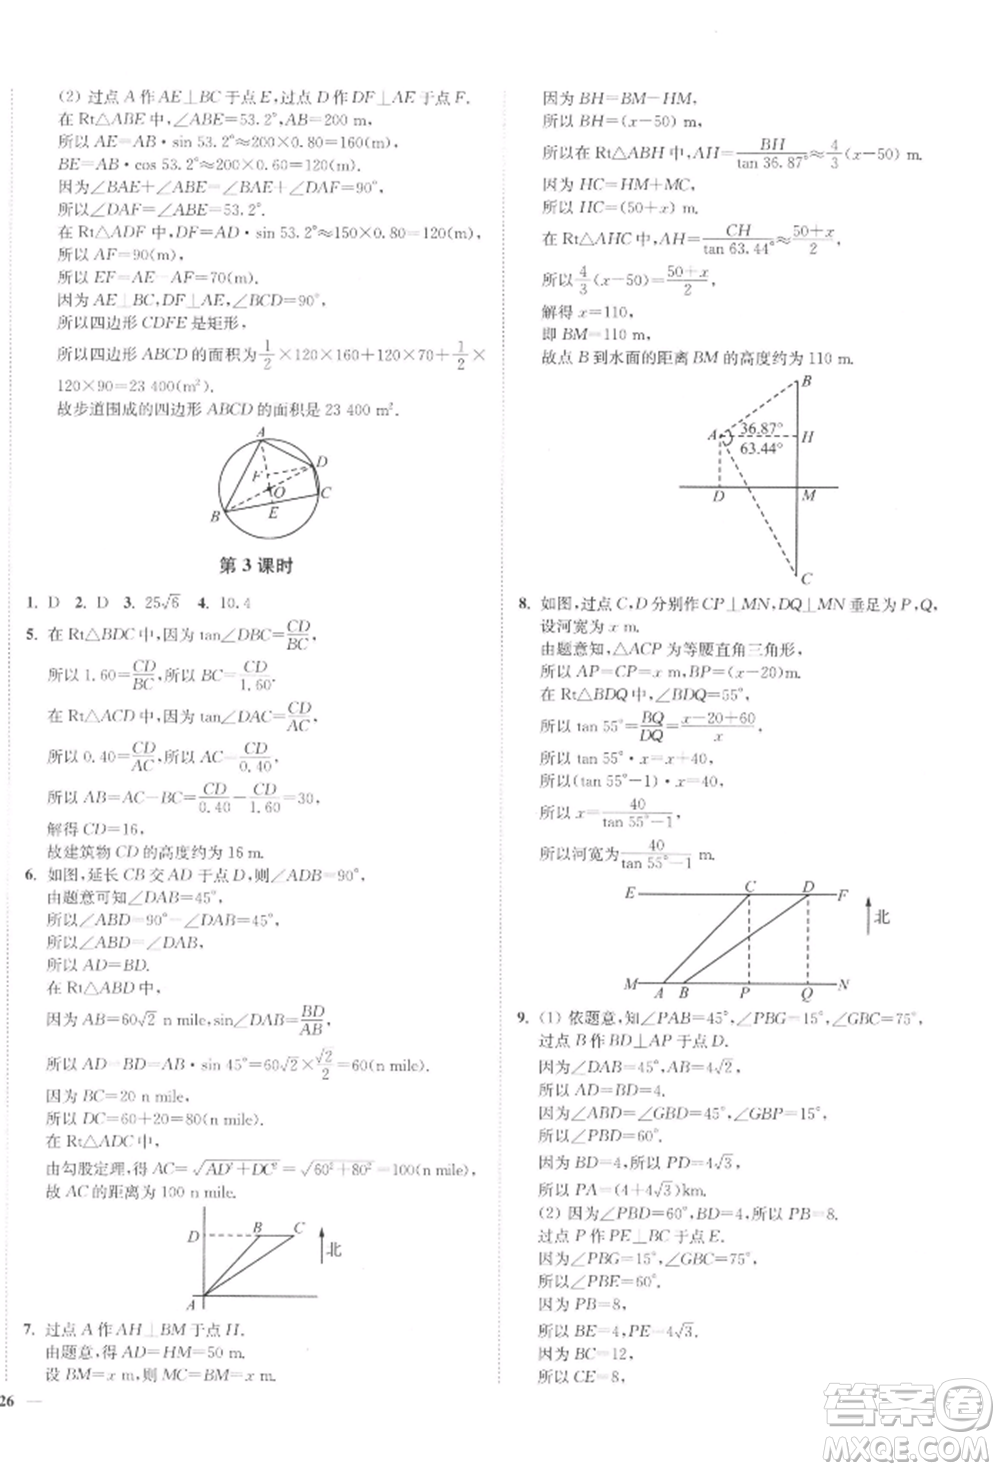 (2) 过点 A 作 AE⊥BC 于点 E,过点 D 作 DF⊥AE 于点 F.
在 Rt△ABE 中,∠ABE=53.2°,AB=200 m,
所以 AE=AB·sin 53.2°≈200×0.80=160(m),
BE=AB·cos 53.2°≈200×0.60=120(m).
因为∠BAE+∠ABE=∠BAE+∠DAF=90°,
所以∠DAF=∠ABE=53.2°.
在 Rt△ADF 中,DF=AD·sin 53.2°≈150×0.80=120(m),
所以 AF=90(m),
所以 EF=AE-AF=70(m).
因为 AE⊥BC,DF⊥AE,∠BCD=90°,
所以四边形 CDFE 是矩形,
所以四边形 ABCD 的面积为 1/2×120×160+120×70+1/2×
120×90=23 400(m²).
故步道围成的四边形 ABCD 的面积是 23 400 m².
A
D
F
O
C
E
B
第 3 课时
1. D 2. D 3. 25√6 4. 10.4
5. 在 Rt△BDC 中,因为 tan∠DBC=CD/BC,
所以 1.60=CD/BC,所以 BC=CD/1.60.
在 Rt△ACD 中,因为 tan∠DAC=CD/AC,
所以 0.40=CD/AC,所以 AC=CD/0.40,
所以 AB=AC-BC=CD/0.40-CD/1.60=30,
解得 CD=16,
故建筑物 CD 的高度约为 16 m.
6. 如图,延长 CB 交 AD 于点 D,则∠ADB=90°,
由题意可知∠DAB=45°,
所以∠ABD=90°-∠DAB=45°,
所以∠ABD=∠DAB,
所以 AD=BD.
在 Rt△ABD 中,
因为 AB=60√2 n mile,sin∠DAB=BD/AB,
所以 AD=BD=AB·sin 45°=60√2×√2/2=60(n mile).
因为 BC=20 n mile,
所以 DC=60+20=80(n mile).
在 Rt△ADC 中,
由勾股定理,得 AC=√(AD²+DC²)=√(60²+80²)=100(n mile).
故 AC 的距离为 100 n mile.
D
B
C
北
A
7. 过点 A 作 AH⊥BM 于点 H.
由题意,得 AD=HM=50 m.
设 BM=x m,则 MC=x m,
26
因为 BH=BM-HM,
所以 BH=(x-50) m,
所以在 Rt△ABH 中,AH=BH/tan 36.87°≈4/3(x-50) m.
因为 HC=HM+MC,
所以 HC=(50+x) m,
在 Rt△AHC 中,AH=CH/tan 63.44°≈(50+x)/2,
所以 4/3(x-50)=(50+x)/2,
解得 x=110,
即 BM=110 m,
故点 B 到水面的距离 BM 的高度约为 110 m.
B
A
36.87°
63.44°
H
D
M
C
8. 如图,过点 C,D 分别作 CP⊥MN,DQ⊥MN 垂足为 P,Q,
设河宽为 x m.
由题意知,△ACP 为等腰直角三角形,
所以 AP=CP=x m,BP=(x-20)m.
在 Rt△BDQ 中,∠BDQ=55°,
所以 tan 55°=BQ/DQ=(x-20+60)/x,
所以 tan 55°·x=x+40,
所以(tan 55°-1)·x=40,
所以 x=40/(tan 55°-1),
所以河宽为 40/(tan 55°-1) m.
E
C
D
F
北
M
A
B
P
Q
N
9. (1) 依题意,知∠PAB=45°,∠PBG=15°,∠GBC=75°,
过点 B 作 BD⊥AP 于点 D.
因为∠DAB=45°,AB=4√2,
所以 AD=BD=4.
因为∠ABD=∠GBD=45°,∠GBP=15°,
所以∠PBD=60°.
因为 BD=4,所以 PD=4√3,
所以 PA=(4+4√3)km.
(2) 因为∠PBD=60°,BD=4,所以 PB=8.
过点 P 作 PE⊥BC 于点 E.
因为∠PBG=15°,∠GBC=75°,
所以∠PBE=60°.
因为 PB=8,
所以 BE=4,PE=4√3.
因为 BC=12,
所以 CE=8,
答案卷
MXQE.COM